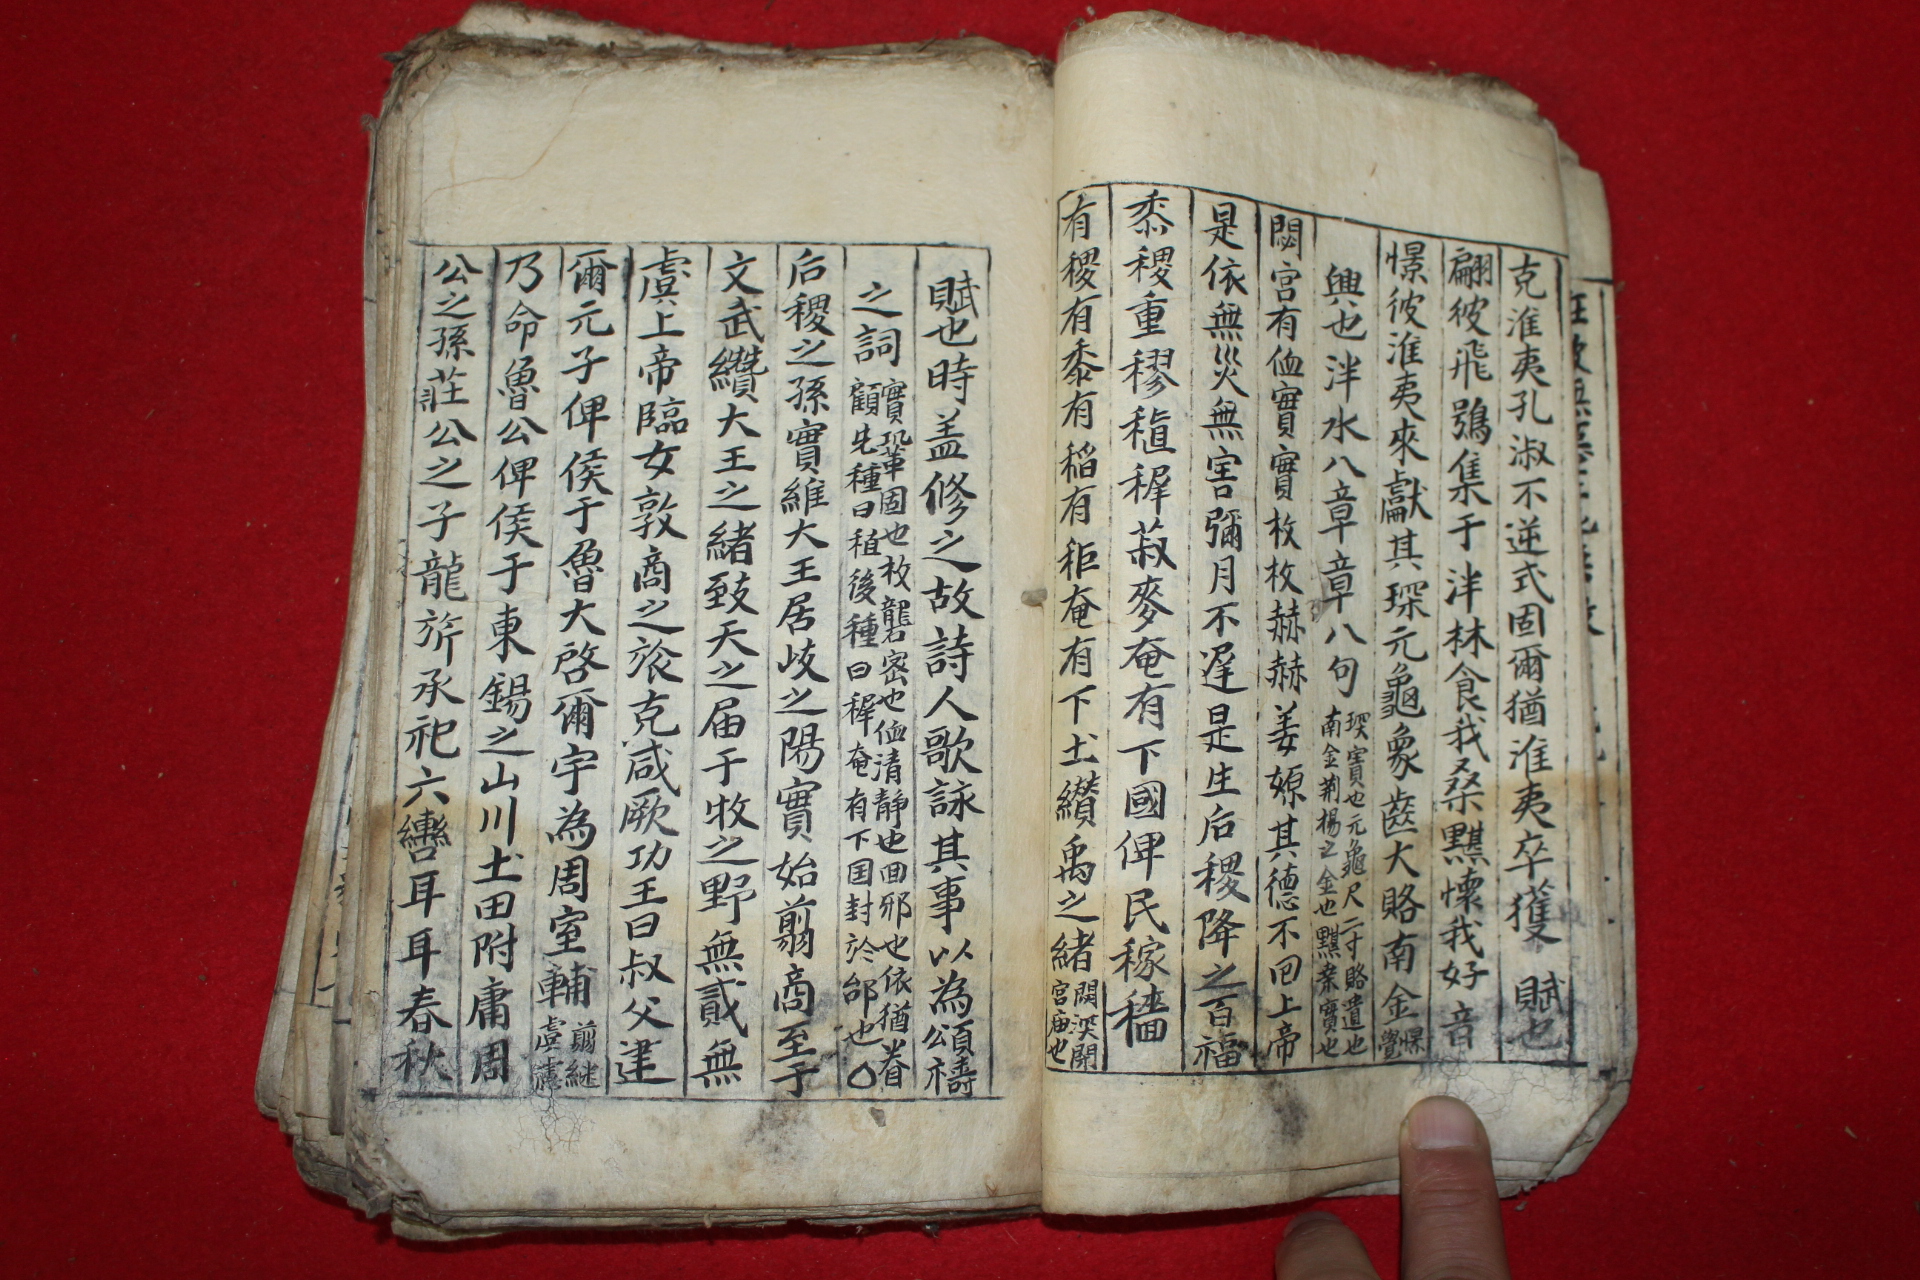 克淮夷孔淑不逆式固爾猶淮夷卒獲 賦也
翩彼飛鴞集于泮林食我桑黮懷我好音
憬彼淮夷來獻其琛元龜象齒大賂南金 憬覺
興也泮水八章章八句 琛寶也元龜尺二寸賂遺也
南金荆楊之金也黮桒實也
閟宮有侐實實枚枚赫赫姜嫄其德不回上帝
是依無災無害彌月不遲是生后稷降之百福
黍稷重穋稙穉菽麥奄有下國俾民稼穡
有稷有黍有稻有秬奄有下土纘禹之緒 閟深閉
宮庙也
賦也時盖修之故詩人歌詠其事以為頌禱
之詞 實鞏固也枚礱密也侐清静也回邪也依猶眷
顧先種曰稙後種曰穉奄有下国封於邰也○
后稷之孫實維大王居岐之陽實始翦商至于
文武纘大王之緒致天之届于牧之野無貳無
虞上帝臨女敦商之旅克咸厥功王曰叔父建
爾元子俾侯于魯大啓爾宇為周室輔 翦継
虞慮
乃命魯公俾侯于東錫之山川土田附庸周
公之孫莊公之子龍旂承祀六轡耳耳春秋